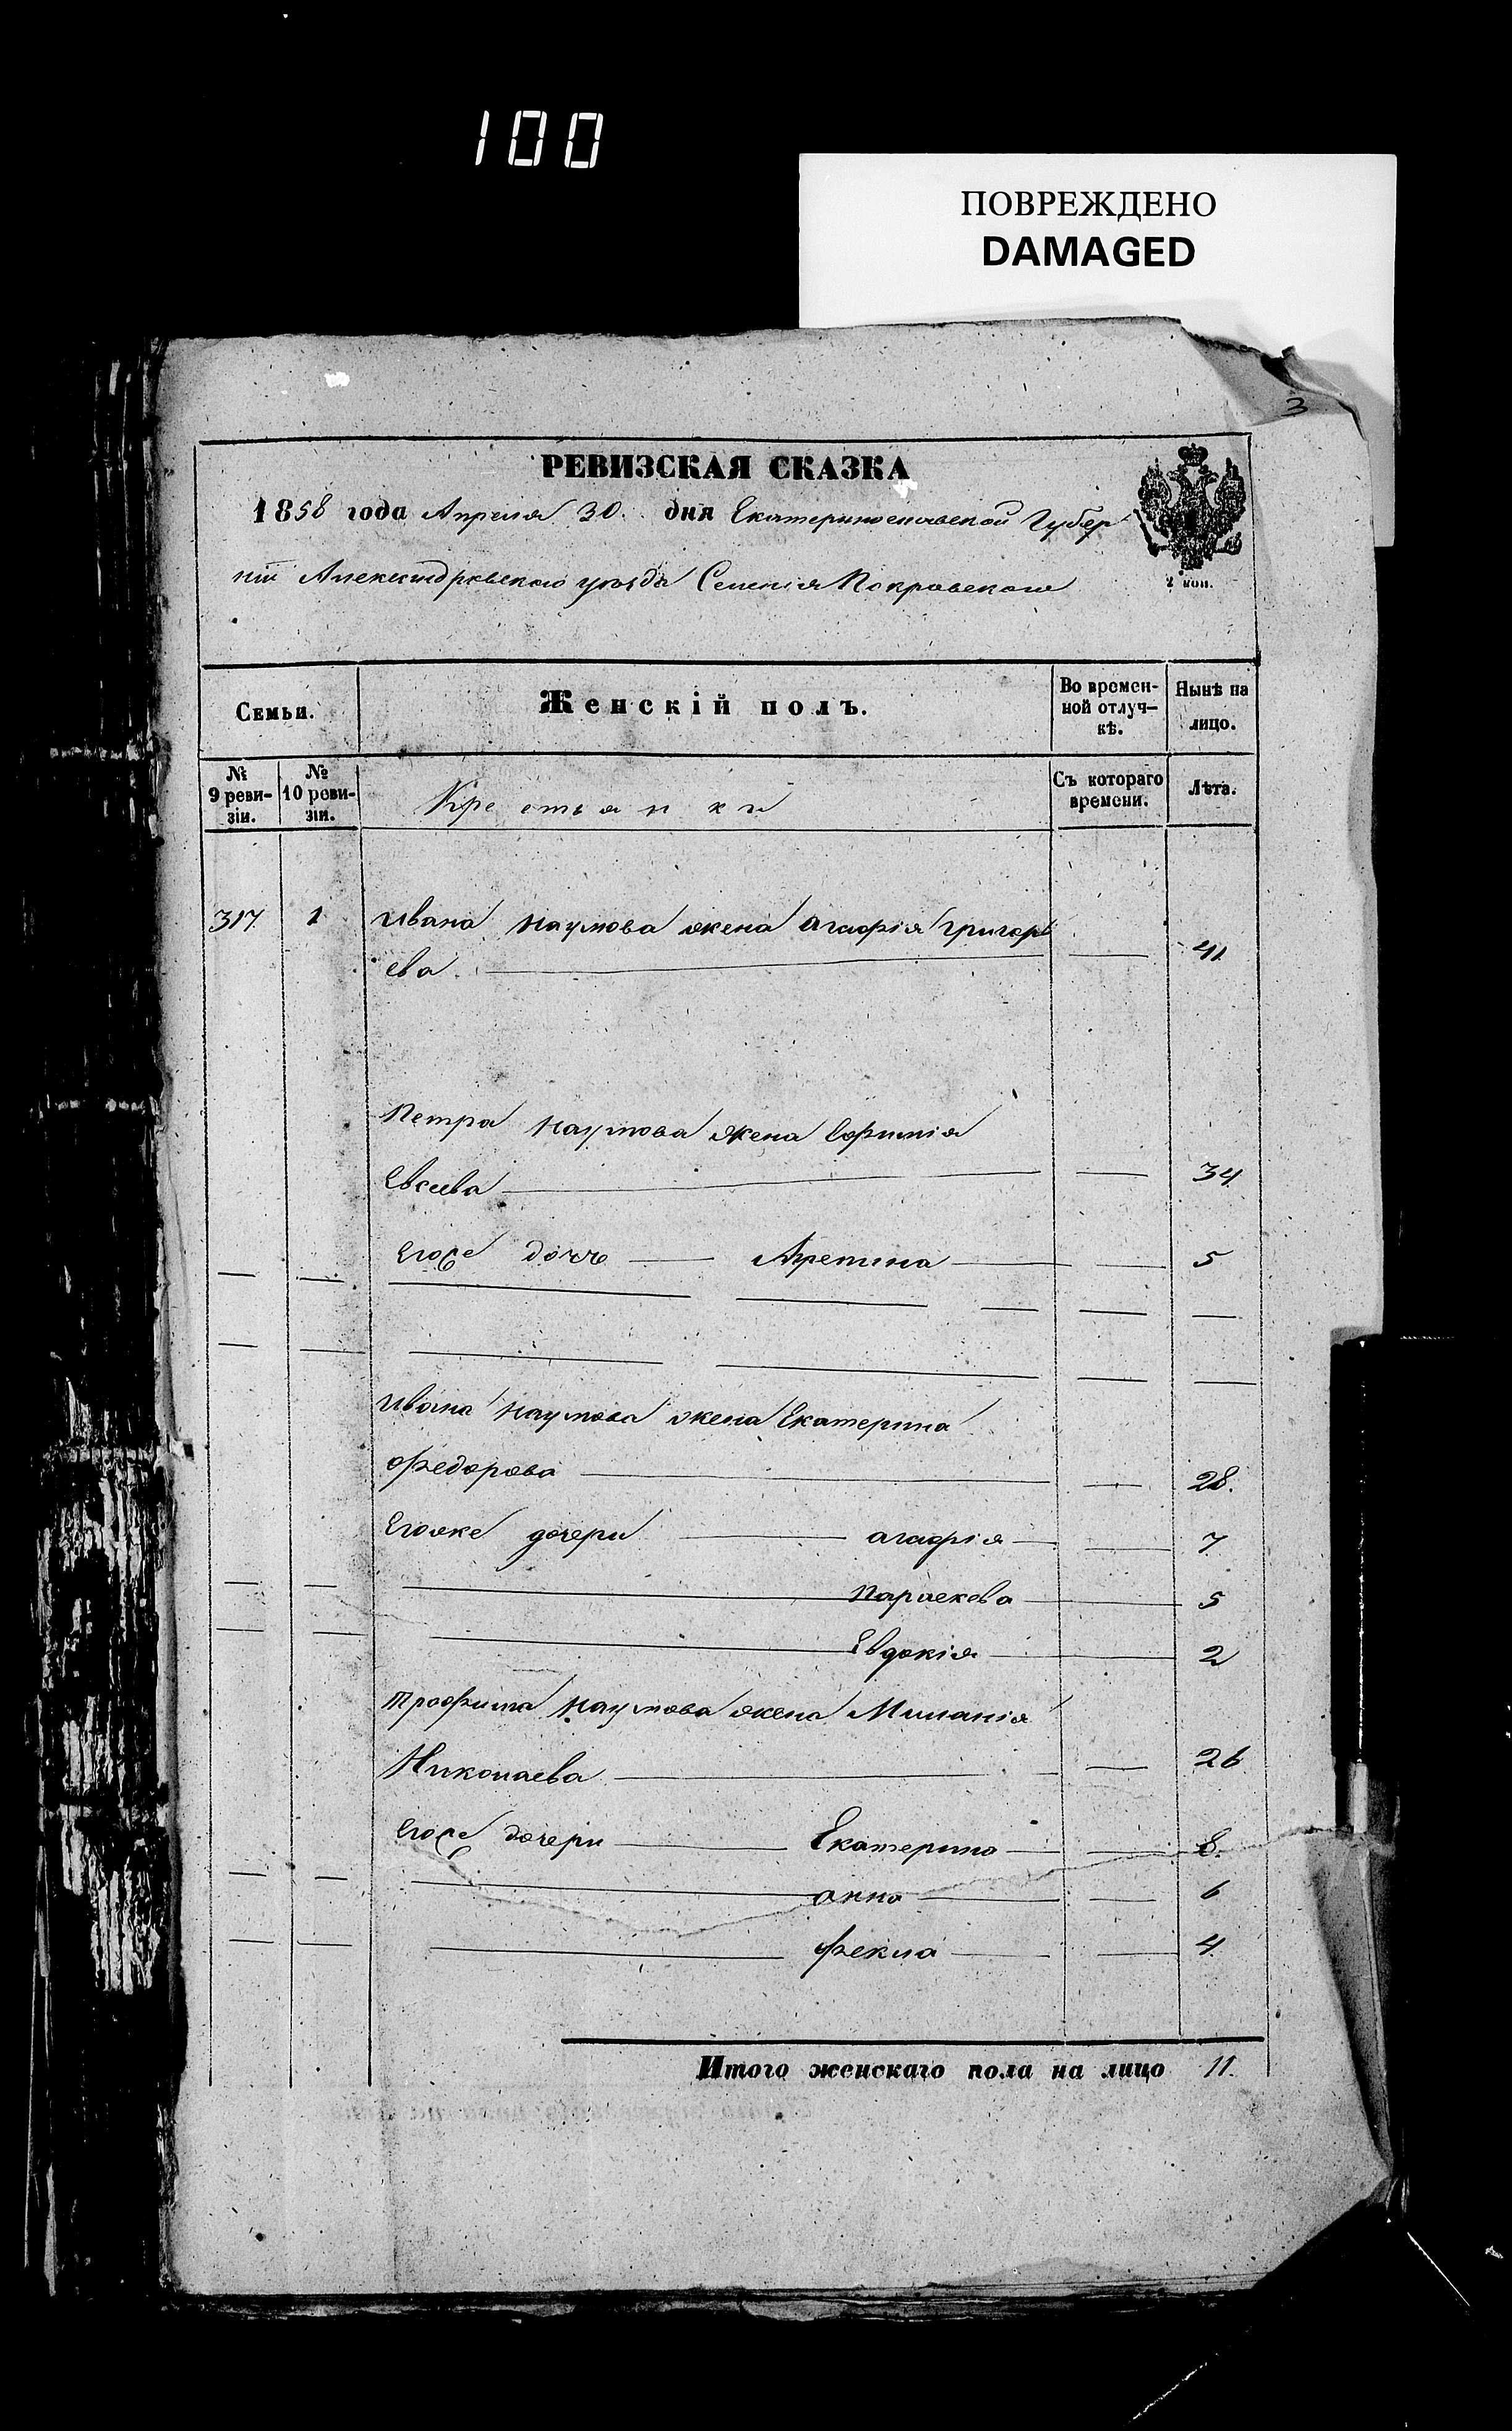 100
ПОВРЕЖДЕНО
DAMAGED
3
РЕВИЗСКАЯ СКАЗКА
1858 года Апреля 30. дня Екатеринославской Губер
ніи Александрвскаго уѣзда Селенія Покровскаго
2 коп.
Семьи.
Женскій полъ.
Во времен-
ной отлуч-
кѣ.
Нынѣ на
лицо.
№
9 реви-
зіи.
№
10 реви-
зіи.
Крестьянки
Съ котораго
времени.
Лѣта.
317 1 Ивана Наумова жена Агафія Григорь
ева 41
Петра Наумова жена Ефимія
Евсеева 34
Егоже дочь 5
Ивана Наумова жена Екатерина
Федорова 28.
Егоже дочери Агафія 7
Парасковя 5
Евдокія 2
Трофима Наумова жена Миланія
Николаева 26
Егоже дочери Екатерина 8.
Анна 6
Фекла 4
Итого женскаго пола на лицо 11.